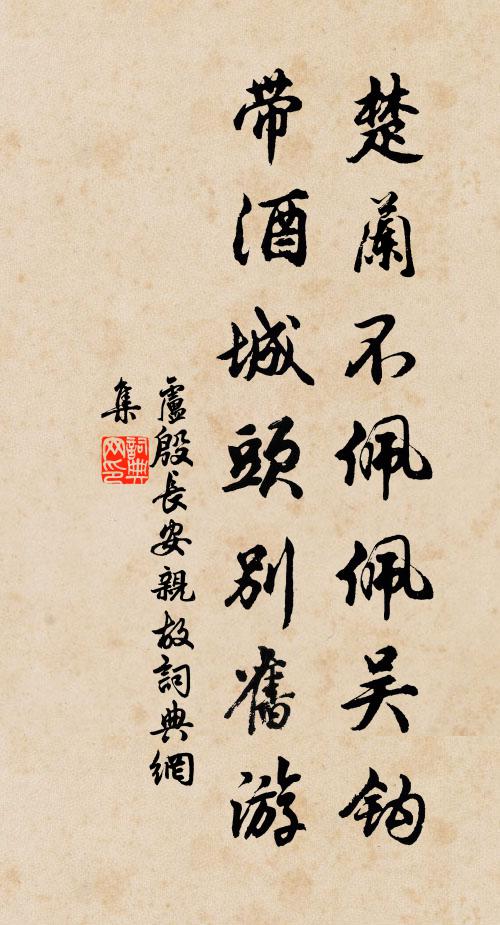 楚蘭不佩佩吴鈎
带酒城頭别舊游
盧殷長安親故詞典網
集
詞典网印